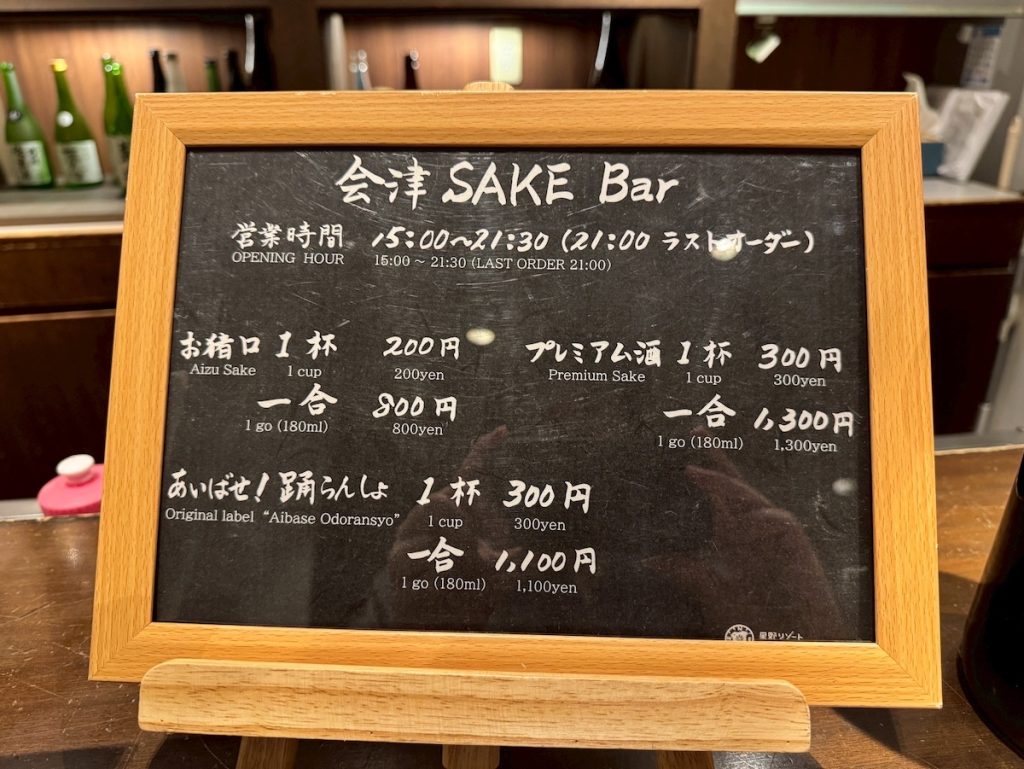 会津 SAKE Bar
営業時間 15:00〜21:30 (21:00 ラストオーダー)
OPENING HOUR 15:00 ~ 21:30 (LAST ORDER 21:00)
お猪口 1杯 200円
Aizu Sake 1 cup 200yen
一合 800円
1 go (180ml) 800yen
プレミアム酒 1杯 300円
Premium Sake 1 cup 300yen
一合 1,300円
1 go (180ml) 1,300yen
あいばせ!踊らんしょ 1杯 300円
Original label “Aibase Odoransyo” 1 cup 300yen
一合 1,100円
1 go (180ml) 1,100yen
星野リゾート